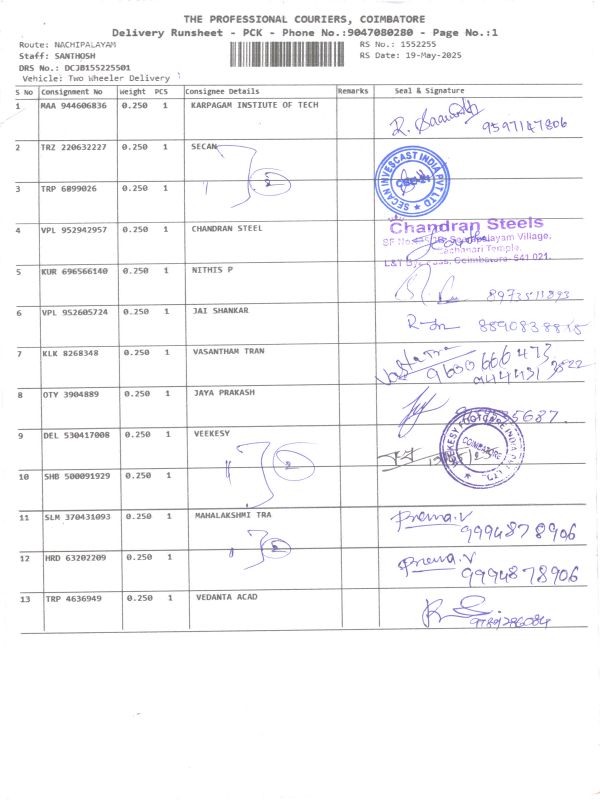 THE PROFESSIONAL COURIERS, COIMBATORE
Delivery Runsheet - PCK - Phone No.:9047080280 - Page No.:1
Route: NACHIPALAYAM RS No.: 1552255
Staff: SANTHOSH RS Date: 19-May-2025
DRS No.: DCJB155225501
Vehicle: Two Wheeler Delivery
S No Consignment No Weight PCS Consignee Details Remarks Seal & Signature
1 MAA 944606836 0.250 1 KARPAGAM INSTIUTE OF TECH
9597147806
2 TRZ 220632227 0.250 1 SECAN
SECAN INVESCAST INDIA PVT LTD
3 TRP 6899026 0.250 1 " 2
4 VPL 952942957 0.250 1 CHANDRAN STEEL Chandran Steels
Village,
Temple,
Coimbatore- 641 021.
5 KUR 696566140 0.250 1 NITHIS P
8973511893
6 VPL 952605724 0.250 1 JAI SHANKAR
8890838818
7 KLK 8268348 0.250 1 VASANTHAM TRAN
9600666473
8 OTY 3904889 0.250 1 JAYA PRAKASH
9 DEL 530417008 0.250 1 VEEKESY
VEEKESY INDIA PVT LTD
COIMBATORE
10 SHB 500091929 0.250 1 " 2
11 SLM 370431093 0.250 1 MAHALAKSHMI TRA Prema.V
9994878906
12 HRD 63202209 0.250 1 " 2 Prema.V
9994878906
13 TRP 4636949 0.250 1 VEDANTA ACAD
9789286084